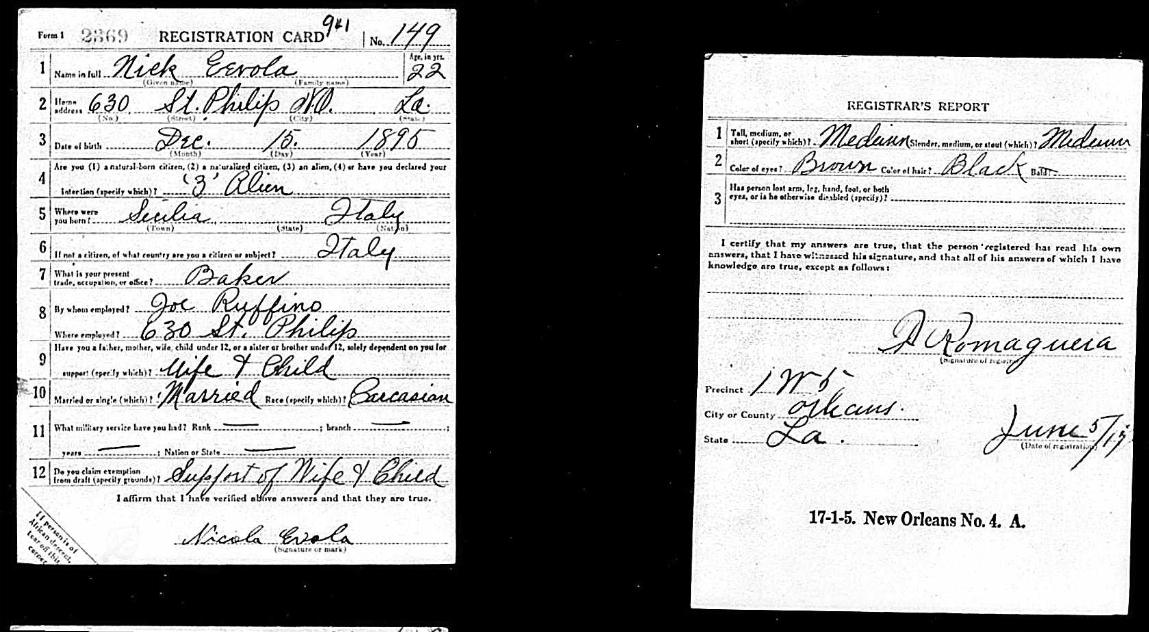 Form 1 2369 REGISTRATION CARD No. 149
1 Name in full Nick Evola Age, in yrs. 22
(Given name) (Family name)
2 Home address 630 St. Philip N.O. La.
(No.) (Street) (City) (State)
3 Date of birth Dec. 15. 1895
(Month) (Day) (Year)
Are you (1) a natural-born citizen, (2) a naturalized citizen, (3) an alien, (4) or have you declared your
4 intention (specify which)? '3' Alien
5 Where were you born? Secilia Italy
(Town) (State) (Nation)
6 If not a citizen, of what country are you a citizen or subject? Italy
7 What is your present trade, occupation, or office? Baker
8 By whom employed? Joe Ruffino
Where employed? 630 St. Philip
9 Have you a father, mother, wife, child under 12, or a sister or brother under 12, solely dependent on you for
support (specify which)? Wife & Child
10 Married or single (which)? Married Race (specify which)? Caucasian
11 What military service have you had? Rank ; branch ;
years ; Nation or State
12 Do you claim exemption from draft (specify grounds)? Support of Wife & Child
I affirm that I have verified above answers and that they are true.
Nicola Evola
(Signature or mark)
If person is of
African descent,
tear off this
corner.
REGISTRAR'S REPORT
1 Tall, medium, or short (specify which)? Medium Slender, medium, or stout (which)? Medium
2 Color of eyes? Brown Color of hair? Black Bald?
3 Has person lost arm, leg, hand, foot, or both
eyes, or is he otherwise disabled (specify)?
I certify that my answers are true, that the person registered has read his own
answers, that I have witnessed his signature, and that all of his answers of which I have
knowledge are true, except as follows:
Romaguera
(Signature of registrar)
Precinct 1 W 5
City or County Orleans.
State La. June 5/17
(Date of registration)
17-1-5. New Orleans No. 4. A.